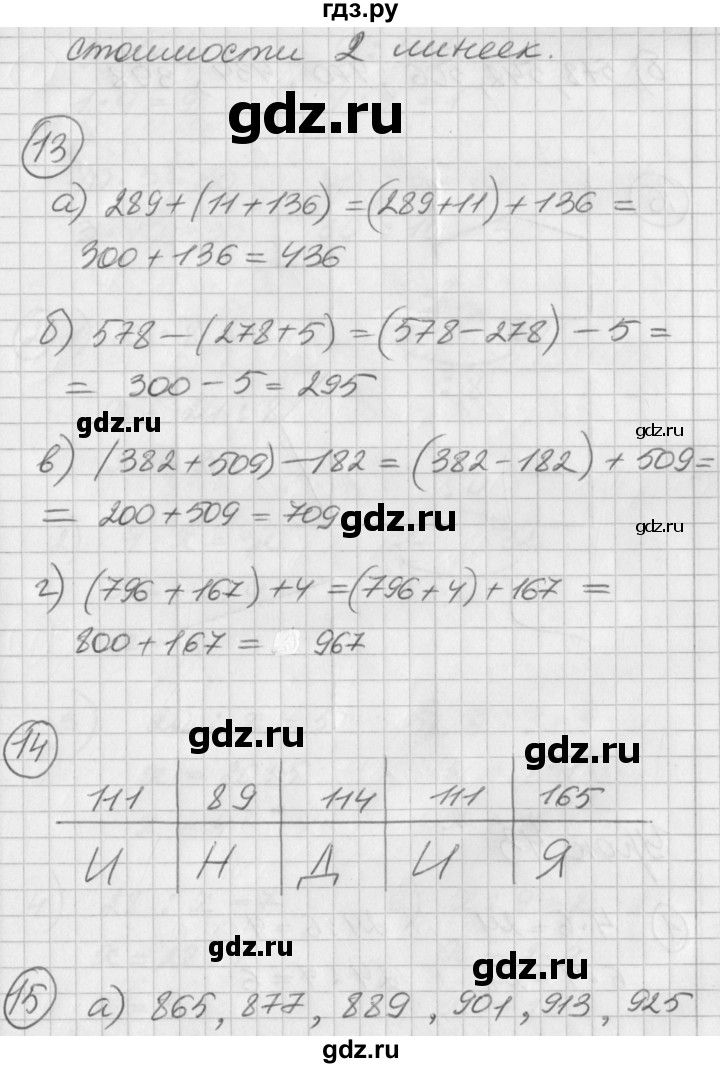 гдз.ру
стоимости 2 линеек.
gdz.ru
13
а) 289+(11+136)=(289+11)+136=
300+136=436
б) 578-(278+5)=(578-278)-5=
= 300-5=295
gdz.ru
gdz.ru
в) (382+509)-182=(382-182)+509=
= 200+509=709
gdz.ru
gdz.ru
г) (796+167)+4=(796+4)+167=
800+167= 967
14
gdz.ru
gdz.ru
111 89 114 111 165
И Н Д И Я
gdz.ru
gdz.ru
15 а) 865, 877, 889, 901, 913, 925
gdz.ru